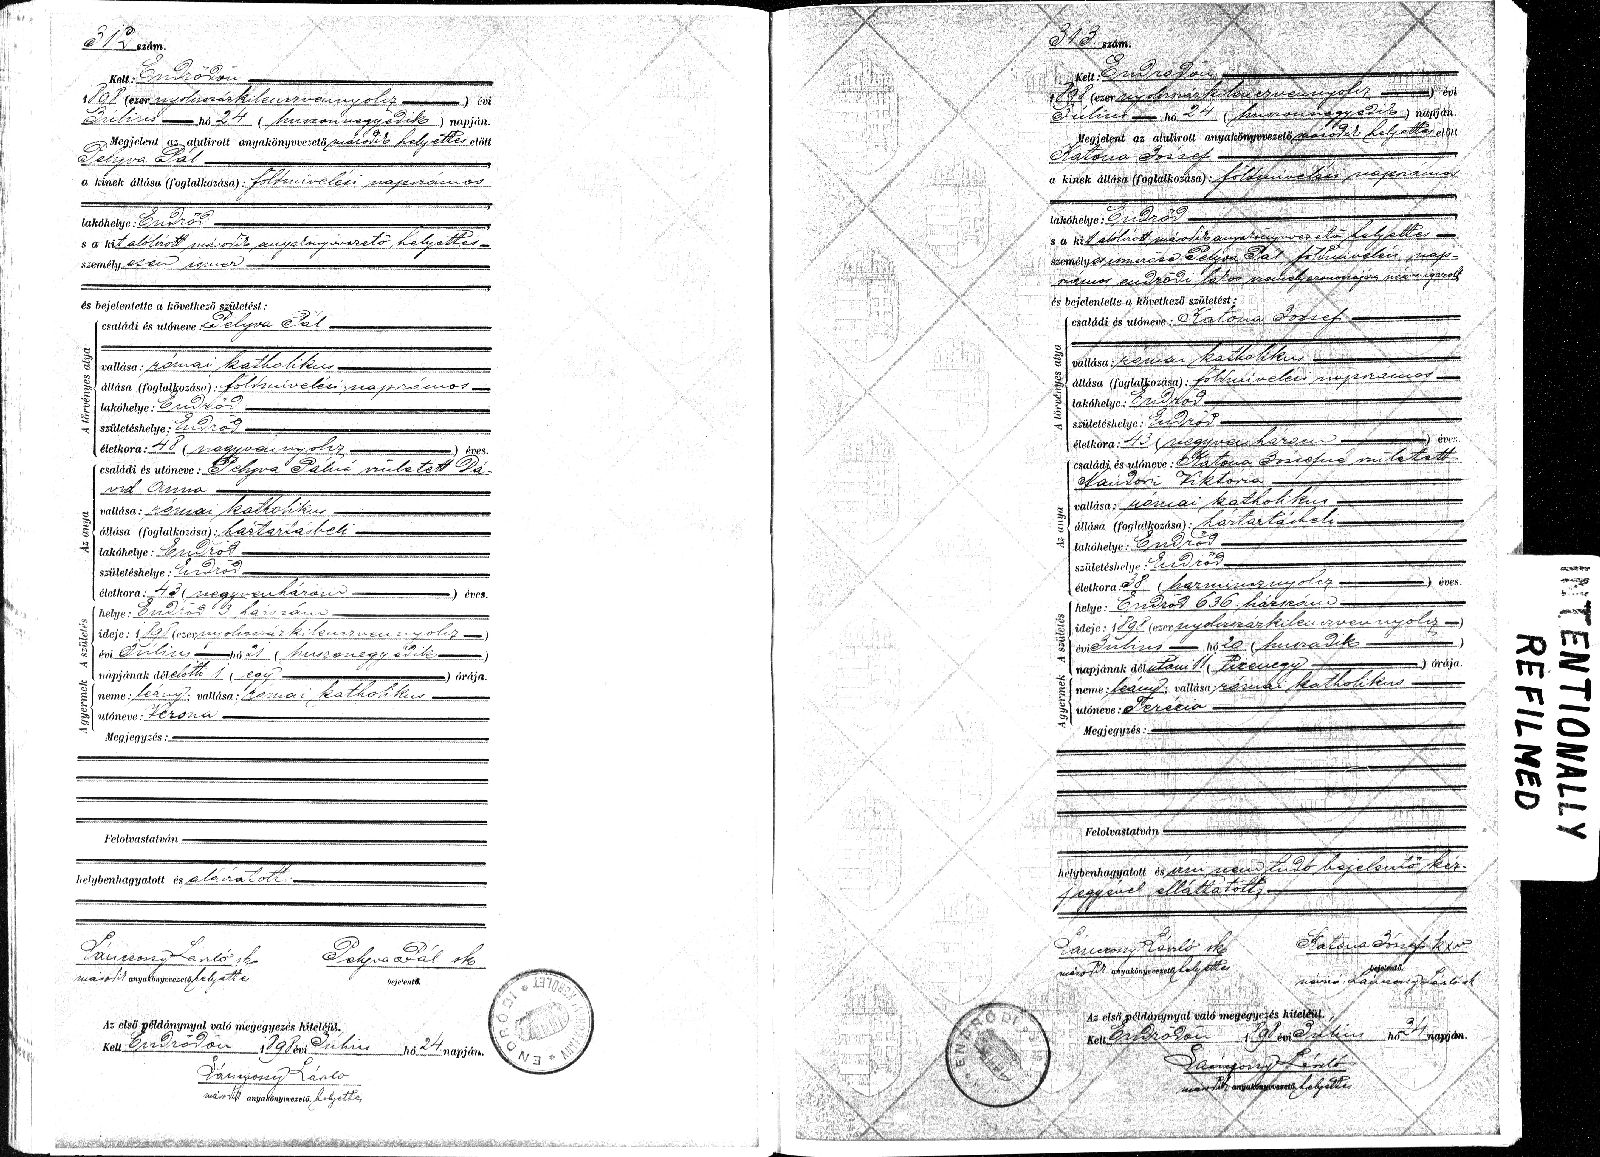 312 szám.
Kelt: Endrődön
1898 (ezer nyolcszázkilencvennyolcz) évi
Julius hó 24 (huszonnegyedik) napján.
Megjelent az alulirott anyakönyvvezető második helyettes előtt
Pelyva Pál
a kinek állása (foglalkozása): földmivelési napszámos
lakóhelye: Endrőd
s a kit alulirott második anyakönyvvezető helyettes
személyesen ismer
és bejelentette a következő születést:
A törvényes atya
családi és utóneve: Pelyva Pál
vallása: római katholikus
állása (foglalkozása): földmivelési napszámos
lakóhelye: Endrőd
születéshelye: Endrőd
életkora: 48 (negyvennyolcz) éves.
Az anya
családi és utóneve: Pelyva Pálné született Dá-
vid Anna
vallása: római katholikus
állása (foglalkozása): háztartásbeli
lakóhelye: Endrőd
születéshelye: Endrőd
életkora: 43 (negyvenhárom) éves.
A gyermek A születés
helye: Endrőd 3 házszám
ideje: 1898 (ezer nyolcszázkilencvennyolcz)
évi Julius hó 21 (huszonegyedik)
napjának délelőtti 1 (egy) órája.
neme: leány; vallása: római katholikus
utóneve: Verona
Megjegyzés:
Felolvastatván
helybenhagyatott és aláiratott.
Lánczony László sk Pelyva Pál sk
második anyakönyvvezető helyettes bejelentő.
Az első példánynyal való megegyezés hiteléül.
Kelt Endrődön 1898 évi Julius hó 24 napján.
Lánczony László
második anyakönyvvezető helyettes
ENDRŐDI
KERÜLET
313 szám.
Kelt: Endrődön
1898 (ezer nyolcszázkilencvennyolcz) évi
Julius hó 24 (huszonnegyedik) napján.
Megjelent az alulirott anyakönyvvezető második helyettes előtt
Katona József
a kinek állása (foglalkozása): földmivelési napszámos
lakóhelye: Endrőd
s a kit alulirott második anyakönyvvezető helyettes
személyes ismerőse Pelyva Pál földmivelési nap-
számos endrődi lakos
és bejelentette a következő születést:
A törvényes atya
családi és utóneve: Katona József
vallása: római katholikus
állása (foglalkozása): földmivelési napszámos
lakóhelye: Endrőd
születéshelye: Endrőd
életkora: 43 (negyvenhárom) éves.
Az anya
családi és utóneve: Katona Józsefné született
Nándori Viktoria
vallása: római katholikus
állása (foglalkozása): háztartásbeli
lakóhelye: Endrőd
születéshelye: Endrőd
életkora 38 (harmincznyolcz) éves.
A gyermek A születés
helye: Endrőd 636 házszám
ideje: 1898 (ezer nyolcszázkilencvennyolcz)
évi Julius hó 20 (huszadik)
napjának délutáni 11 (tizenegy) órája.
neme: leány; vallása: római katholikus
utóneve: Terézia
Megjegyzés:
Felolvastatván
helybenhagyatott és irni nem tudó bejelentő kéz-
jegyével elláttatott.
Lánczony László sk Katona József k x v
második anyakönyvvezető helyettes bejelentő.
Lánczony László sk
Az első példánynyal való megegyezés hiteléül.
Kelt Endrődön 1898 évi Julius hó 31 napján.
Lánczony László
második anyakönyvvezető helyettes
ENDRŐDI
INTENTIONALLY
REFILMED